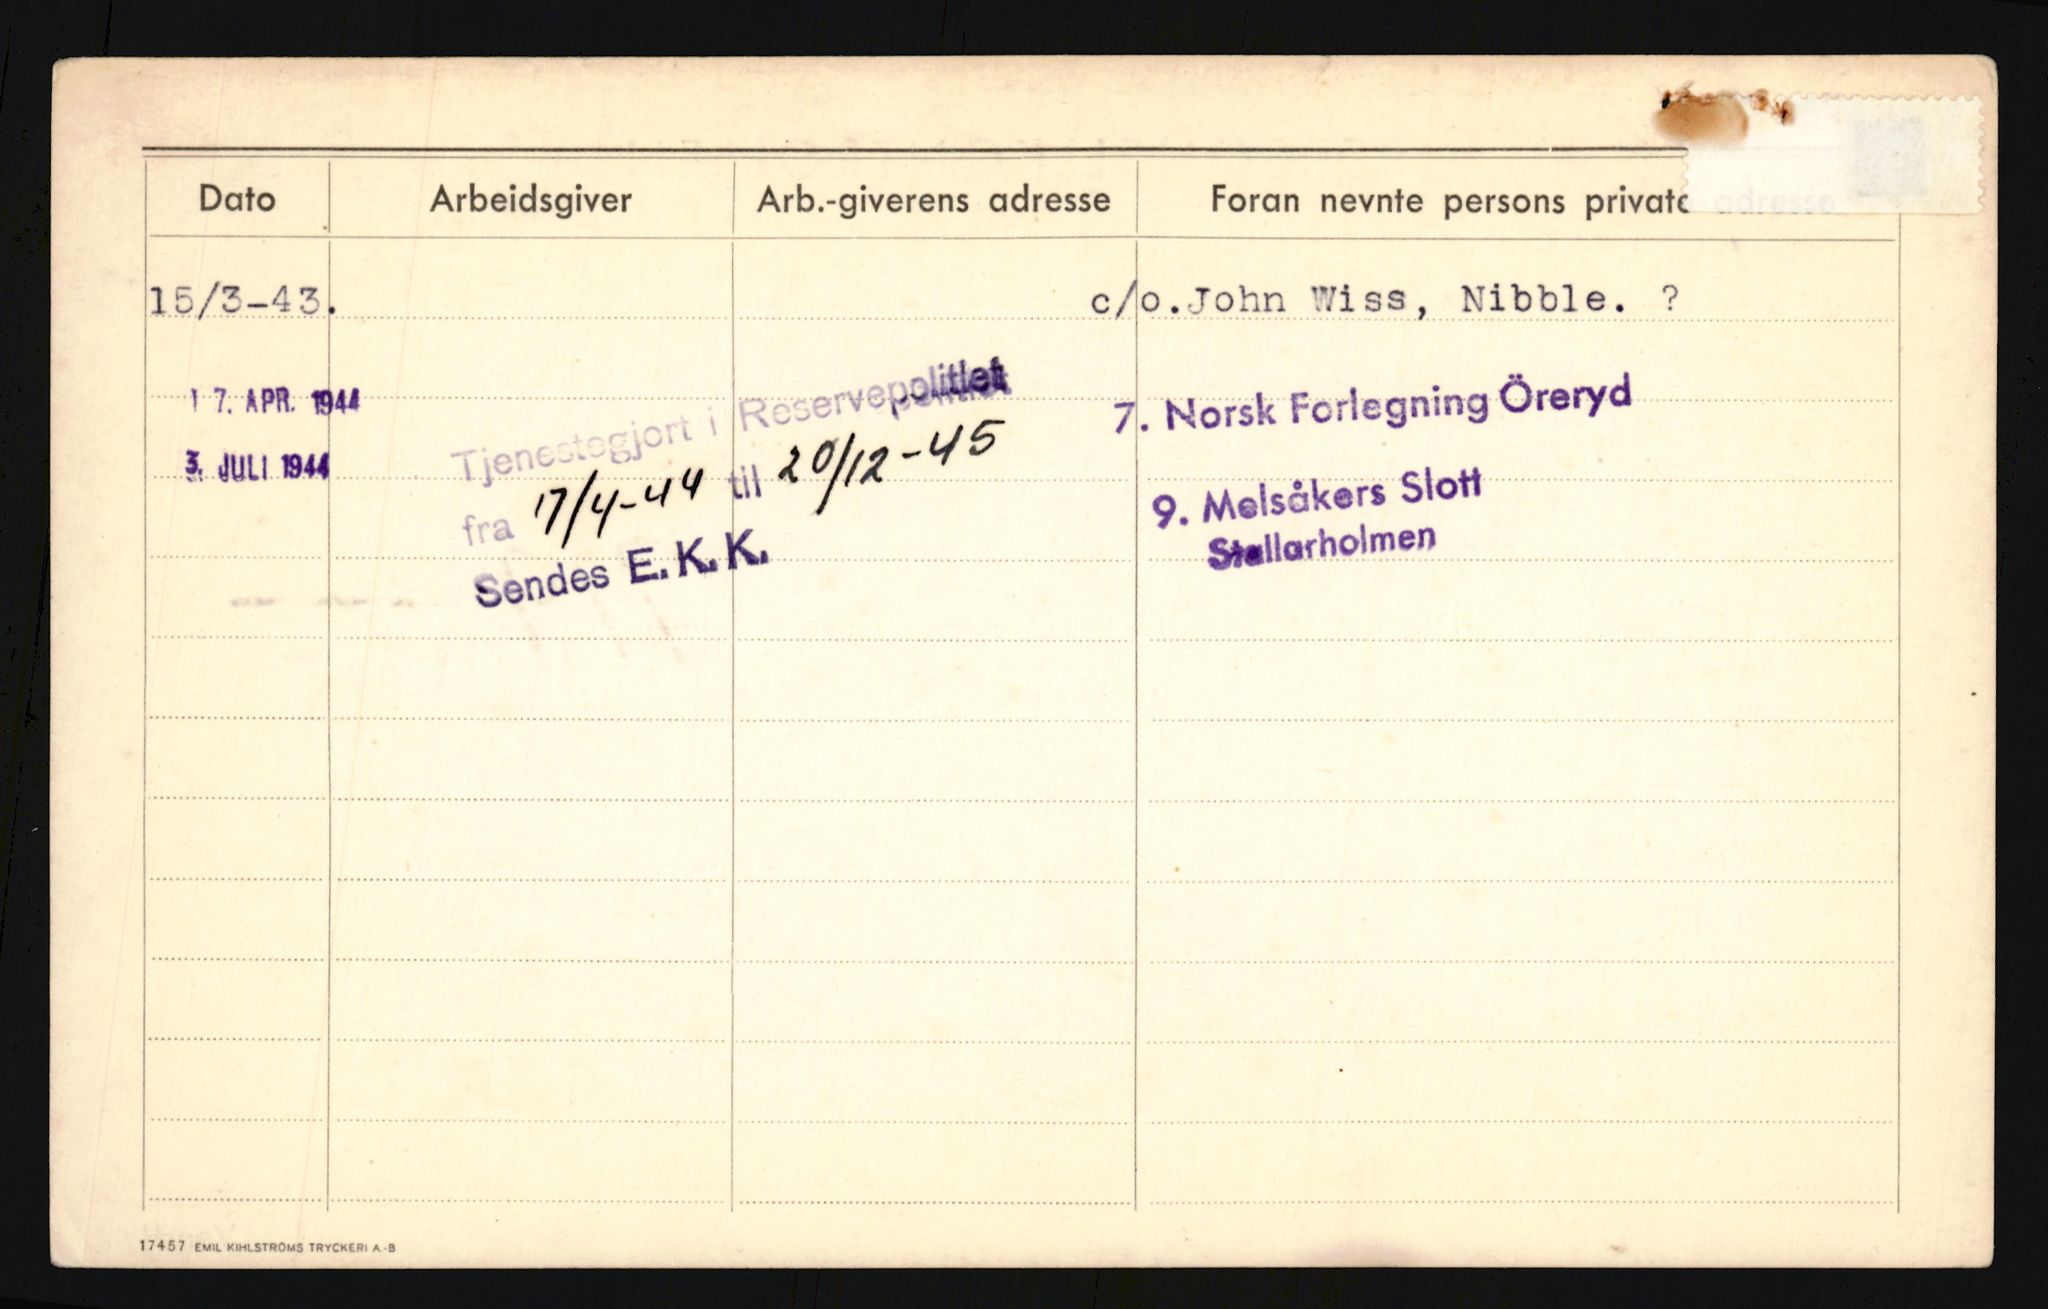 Dato Arbeidsgiver Arb.-giverens adresse Foran nevnte persons private adresse
15/3-43. c/o.John Wiss, Nibble. ?
17. APR. 1944 7. Norsk Forlegning Öreryd
3. JULI 1944 9. Melsåkers Slott
Stallarholmen
Tjenestegjort i Reservepolitiet
fra 17/4-44 til 20/12-45
Sendes E.K.K.
17457 EMIL KIHLSTRÖMS TRYCKERI A.-B